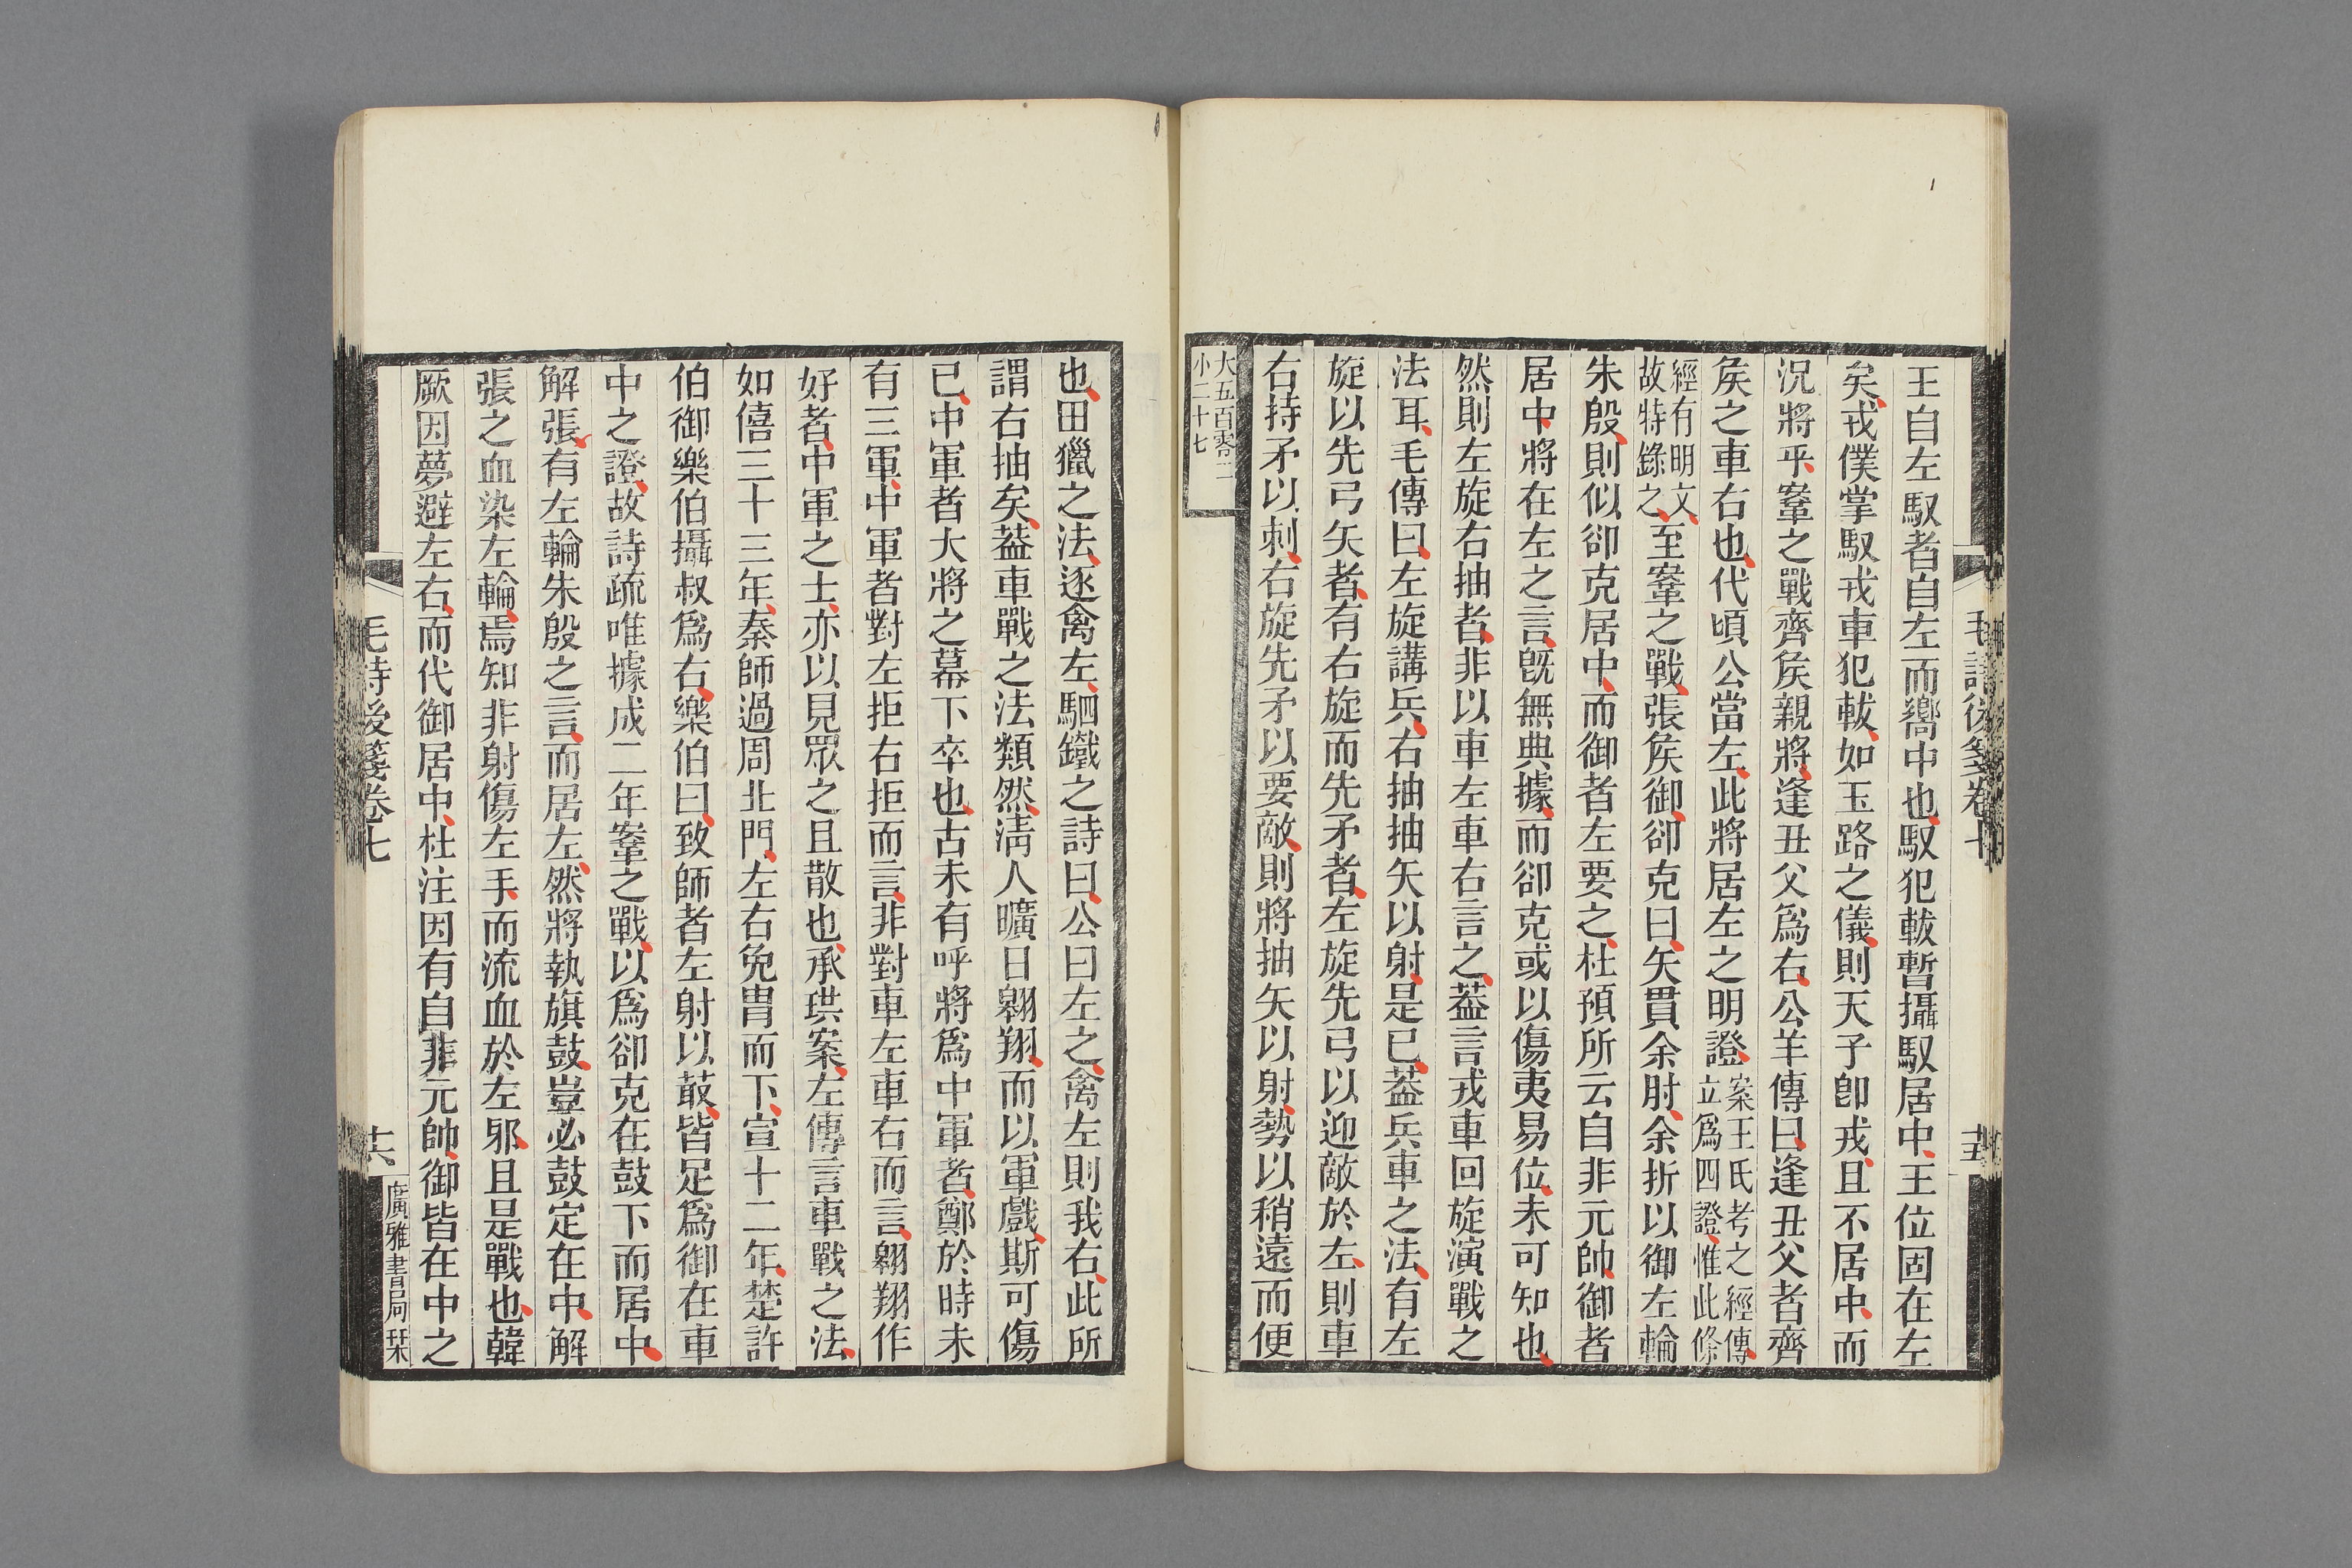 毛詩後箋卷七
王自左馭者自左而嚮中也馭犯軷暫攝馭居中王位固在左
矣戎僕掌馭戎車犯軷如玉路之儀則天子卽戎且不居中而
況將乎鞌之戰齊矦親將逢丑父爲右公羊傳曰逢丑父者齊
矦之車右也代頃公當左此將居左之明證案王氏考之經傳
立爲四證惟此條
經有明文
故特錄之至鞌之戰張矦御郤克曰矢貫余肘余折以御左輪
朱殷則似郤克居中而御者左要之杜預所云自非元帥御者
居中將在左之言旣無典據而郤克或以傷夷易位未可知也
然則左旋右抽者非以車左車右言之葢言戎車回旋演戰之
法耳毛傳曰左旋講兵右抽抽矢以射是已葢兵車之法有左
旋以先弓矢者有右旋而先矛者左旋先弓以迎敵於左則車
右持矛以刺右旋先矛以要敵則將抽矢以射勢以稍遠而便
大五百零二
小二十七
也田獵之法逐禽左駟鐵之詩曰公曰左之禽左則我右此所
謂右抽矣葢車戰之法類然淸人曠日翱翔而以軍戲斯可傷
已中軍者大將之幕下卒也古未有呼將爲中軍者鄭於時未
有三軍中軍者對左拒右拒而言非對車左車右而言翱翔作
好者中軍之士亦以見眾之且散也承珙案左傳言車戰之法
如僖三十三年秦師過周北門左右免胄而下宣十二年楚許
伯御樂伯攝叔爲右樂伯曰致師者左射以菆皆足爲御在車
中之證故詩疏唯據成二年鞌之戰以爲郤克在鼓下而居中
解張有左輪朱殷之言而居左然將執旗鼓豈必鼓定在中解
張之血染左輪焉知非射傷左手而流血於左邪且是戰也韓
厥因夢避左右而代御居中杜注因有自非元帥御皆在中之
毛詩後箋卷七
十六
廣雅書局栞